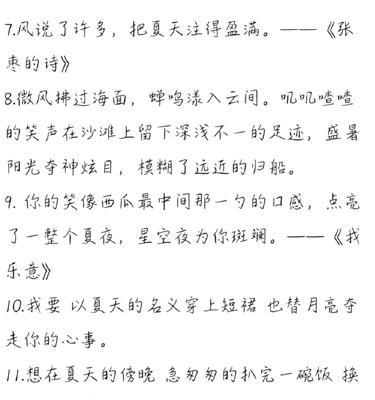 7.风说了许多，把夏天注得盈满。——《张
枣的诗》
8.微风拂过海面，蝉鸣漾入云间。叽叽喳喳
的笑声在沙滩上留下深浅不一的足迹，盛暑
阳光夺神炫目，模糊了远近的归船。
9. 你的笑像西瓜最中间那一勺的口感，点亮
了一整个夏夜，星空夜为你斑斓。——《我
乐意》
10.我要 以夏天的名义穿上短裙 也替月亮夺
走你的心事。
11.想在夏天的傍晚 急匆匆的扒完一碗饭 换